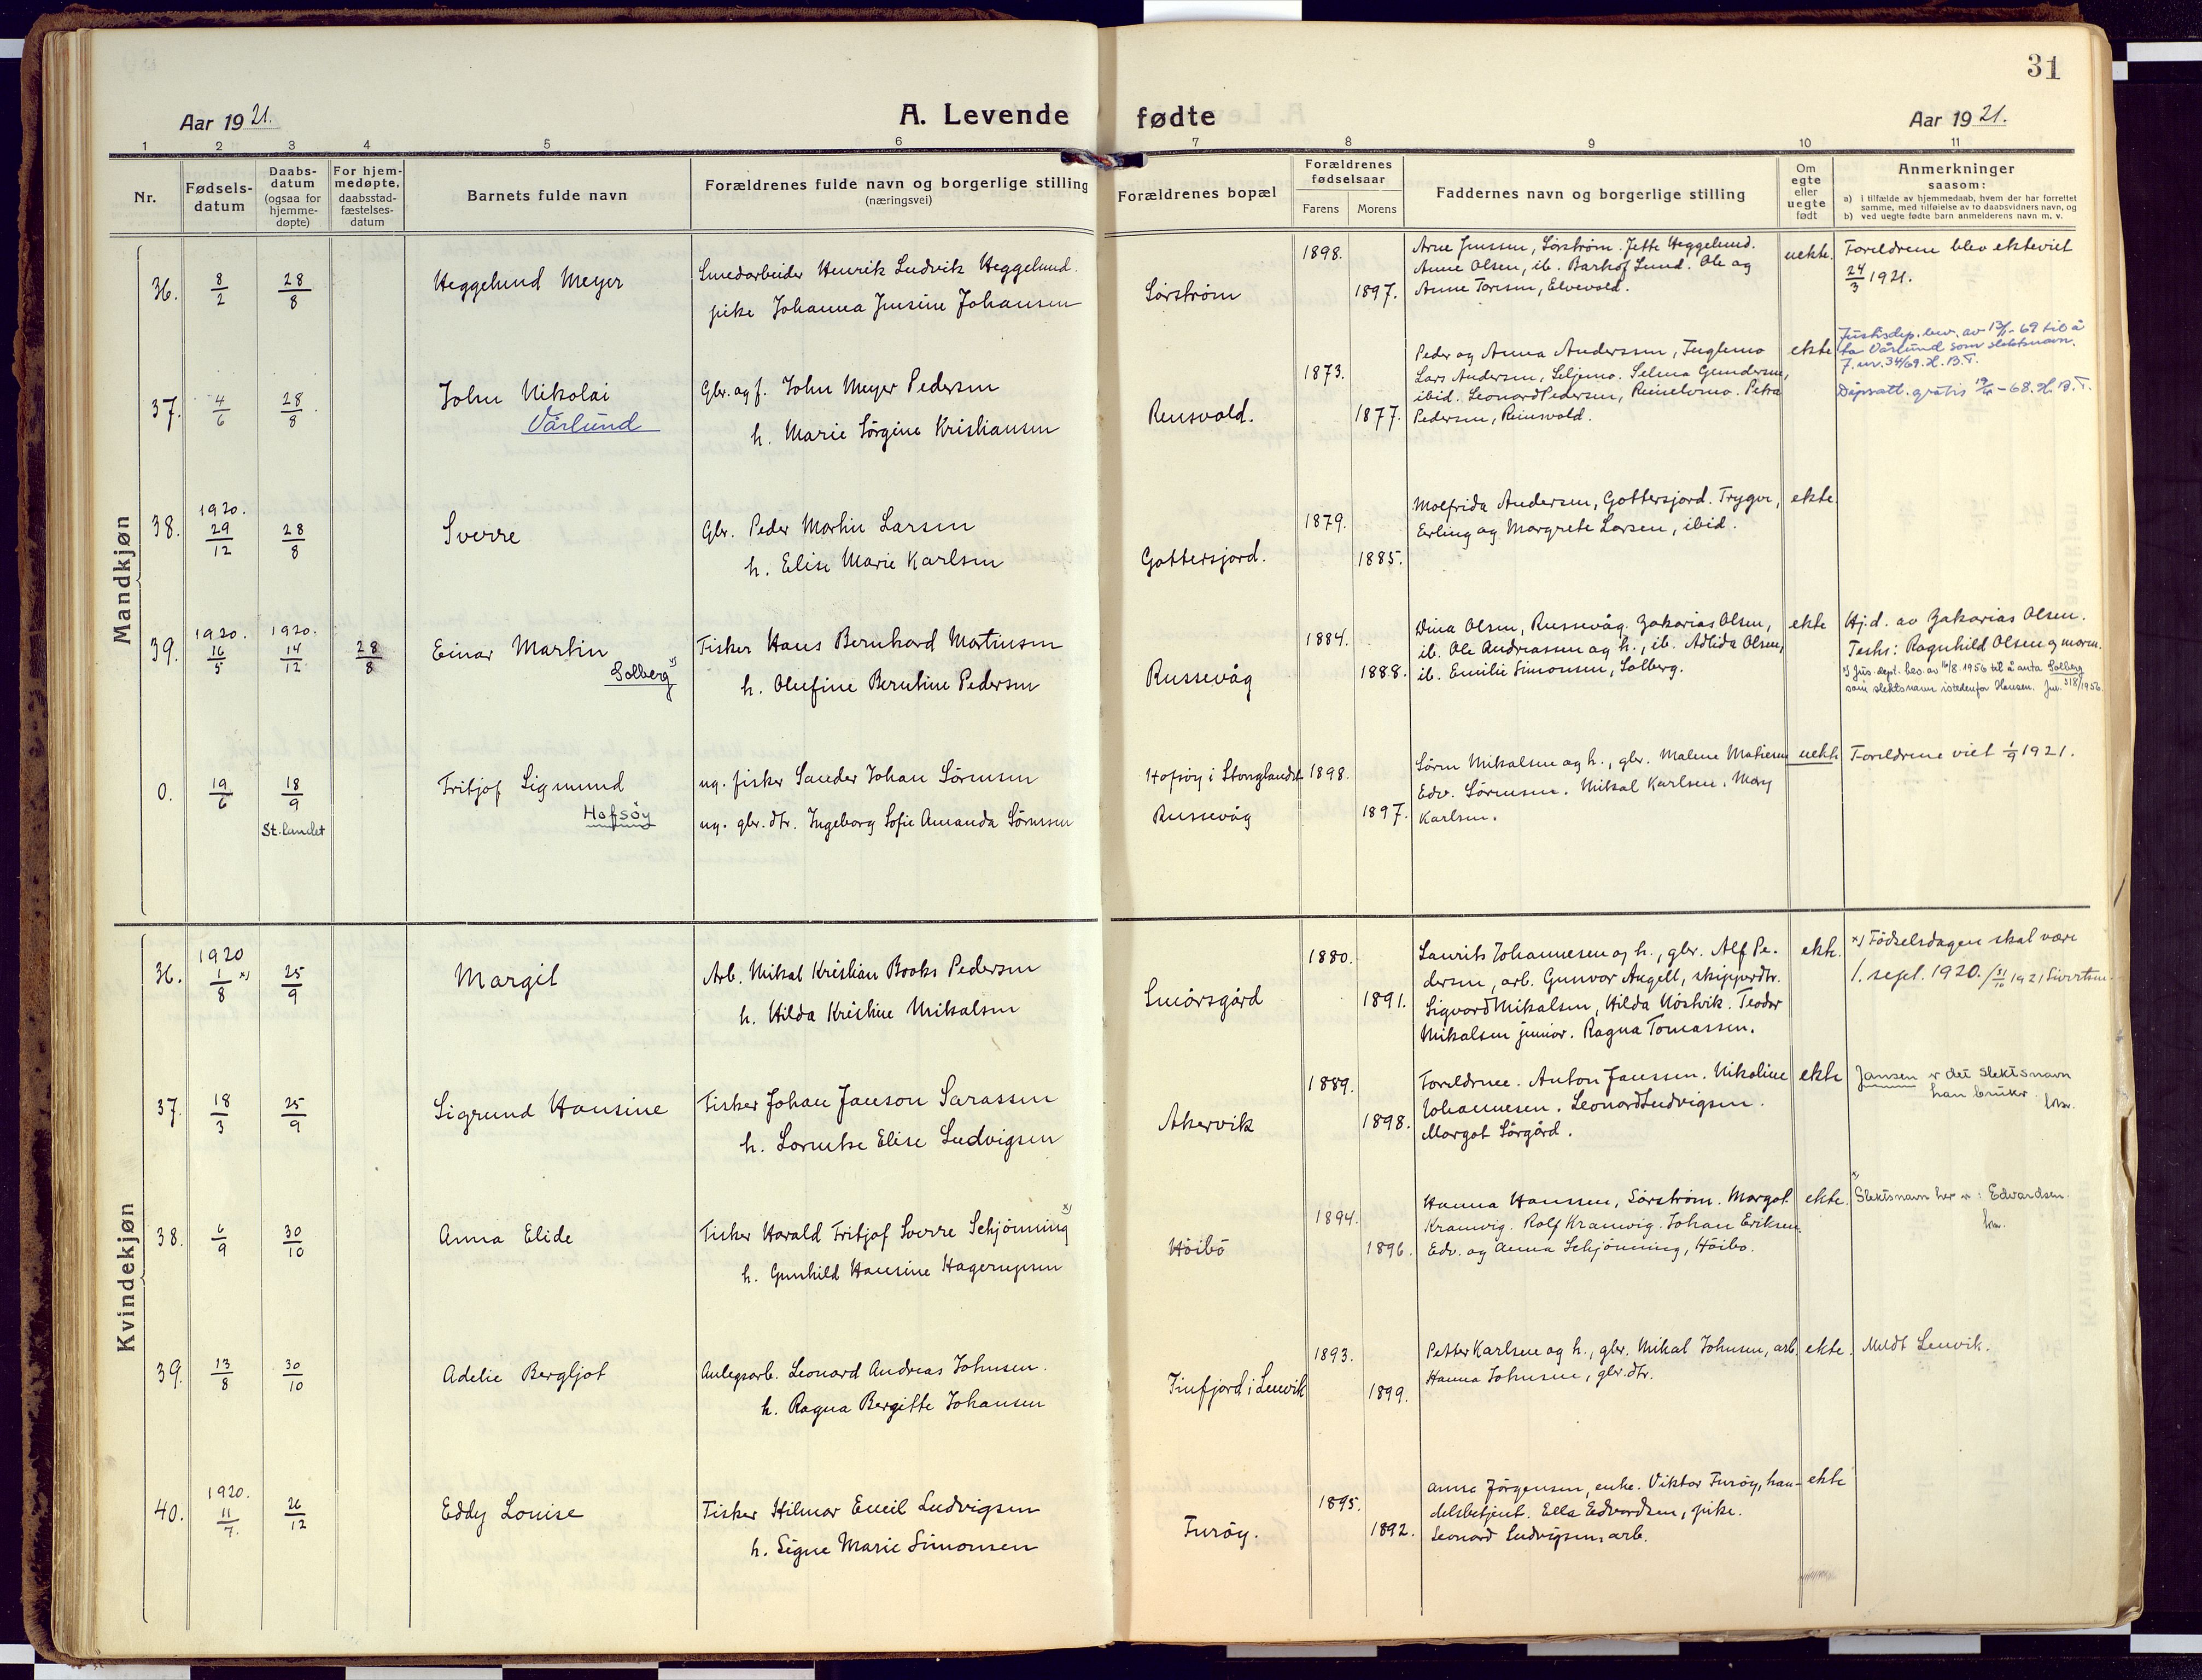 31
Aar 1921.
A. Levende fødte
Aar 1921.
1 2 3 4 5 6 7 8 9 10 11
Nr.
Fødsels-
datum
Daabs-
datum
(ogsaa for
hjemme-
døpte)
For hjem-
medøpte,
daabsstad-
fæstelses-
datum
Barnets fulde navn
Forældrenes fulde navn og borgerlige stilling
(næringsvei)
Forældrenes bopæl
Forældrenes
fødselsaar
Farens Morens
Faddernes navn og borgerlige stilling
Om
egte
eller
uegte
født
Anmerkninger
saasom:
a) i tilfælde av hjemmedaab, hvem der har forrettet
samme, med tilføielse av to daabsvidners navn, og
b) ved uegte fødte barn anmelderens navn m. v.
Mandkjøn
36. 8/2 28/8
Heggelund Meyer
Smedarbeider Henrik Ludvik Heggelund.
pike Johanna Jensine Johansen
Sörström
1898.
1897.
Arne Jenssen, Sörström. Jette Heggelund.
Anne Olsen, ib. Barhof Lund. Ole og
Anne Toresen, Elvevold.
uekte.
Foreldrene blev ekteviet
24/3 1921.
37. 4/6 28/8.
John Nikolai
Vårlund
Gbr. og f. John Meyer Pedersen
h. Marie Sörgine Kristiansen
Rensvold.
1873.
1877.
Peder og Anna Anderssen, Fuglemo
Lars Andersen, Seljemo. Selma Gundersen,
ibid. Leonard Pedersen, Reinelvmo. Petra
Pedersen, Reinsvold.
ekte
Justisdep. bev. av 13/1-69 til å
ta Vårlund som slektsnavn.
J. nr. 34/69. H. B. T.
Dåpsatt. gratis 19/6-68. H. B. T.
38. 1920. 29/12 28/8
Sverre
Gbr. Peder Martin Larsen
h. Elise Marie Karlsen
Gottersjord.
1879.
1885.
Molfrida Andersen, Gottersjord. Trygve,
Erling og Margrete Larsen, ibid.
ekte.
39. 1920. 16/5 1920. 14/12 28/8
Einar Martin
Solberg x)
Fisker Hans Bernhard Martinsen
h. Olufine Berntine Pedersen
Russevåg
1884.
1888.
Dina Olsen, Russevåg. Zakarias Olsen,
ib. Ole Andreassen og h., ib. Adlida Olsen,
ib. Emilie Simonsen, Solberg.
ekte
Hj.d. av Zakarias Olsen.
Testi: Ragnhild Olsen og moren.
x) Jus. dept. bev. av 16/8.1956 til å anta Solberg
som slektsnavn istedenfor Hansen. Jnr. 318/1956.
0. 19/6 18/9
St.landet
Fritjof Sigmund
Hofsøy
ug. fisker Sander Johan Sörensen
ug. gbr. dtr. Ingeborg Sofie Amanda Sörensen
Hofsöy i Stonglandet
Russevåg
1898.
1897.
Sören Mikalsen og h., gbr. Malene Matiesen
Edv. Sörensen. Mikal Karlsen. Mary
Karlsen.
uekte
Foreldrene viet 1/9 1921.
Kvindekjøn
36. 1920 1/8 x) 25/9
Margit
Arb. Mikal Kristian Books Pedersen
h. Hilda Kristine Mikalsen
Smörsgård
1880.
1891.
Laurits Johannesen og h., gbr. Alf Pe-
dersen, arb. Gunvor Angell, skipperdtr.
Sigvard Mikalsen, Hilda Höstvik. Teodor
Mikalsen junior. Ragna Tomassen.
ekte.
x) Födselsdagen skal være
1. sept. 1920. / 31/10 1921
37. 18/3 25/9
Sigrund Hansine
Fisker Johan Janson Sarassen
h. Lorentse Elise Ludvigsen
Akervik
1889.
1898.
Foreldrene. Anton Janssen. Nikoline
Johannesen. Leonard Ludvigsen.
Margot Sörgård.
ekte
Jansen er det slektsnavn
han bruker.
38. 6/9 30/10
Anna Elide
Fisker Harald Fritjof Sverre Schjönning x)
h. Gunhild Hansine Hagerupsen
Höibö
1894.
1896.
Hanna Hanssen, Sörström. Margot
Kramvig. Rolf Kramvig. Johan Eriksen.
Edv. og Anna Schjönning, Höibo.
ekte.
x) Slektsnavn her er: Edvardsen.
39. 13/8 30/10
Adelie Bergljot
Anlegsarb. Leonard Andreas Johnsen.
h. Ragna Bergitte Johansen
Finfjord i Lenvik
1893.
1899.
Petter Karlsen og h., gbr. Mikal Johnsen, arb.
Hanna Johnsen, gbr. dtr.
ekte.
Meldt Lenvik.
40. 1920. 11/7. 26/12
Eddy Louise
Fisker Hilmar Emil Ludvigsen
h. Signe Marie Simonsen
Furöy.
1895.
1892.
Anna Jörgensen, enke. Viktor Furöy, han-
delsbetjent. Ella Edvardsen, pike.
Leonard Ludvigsen, arb.
ekte